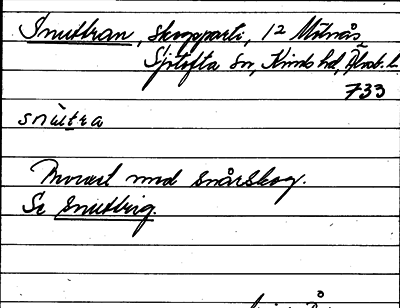 Snuttran, skogsparti, 12 Mölnås
Sjötofta sn, Kinds hd, Älvsb. l.
733
snùtra
Morast med snårskog.
Se snuttrig.